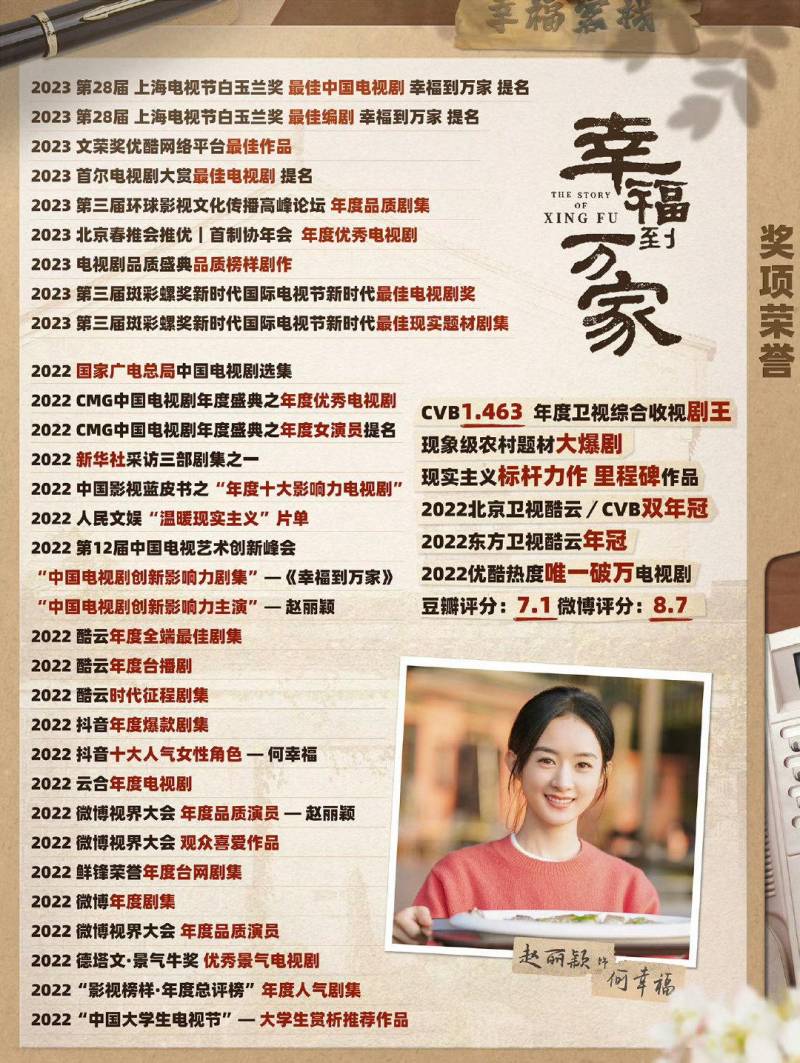 幸福密战
2023 第28届 上海电视节白玉兰奖 最佳中国电视剧 幸福到万家 提名
2023 第28届 上海电视节白玉兰奖 最佳编剧 幸福到万家 提名
2023 文荣奖优酷网络平台最佳作品
2023 首尔电视剧大赏最佳电视剧 提名
2023 第三届环球影视文化传播高峰论坛 年度品质剧集
2023 北京春推会推优｜首制协年会 年度优秀电视剧
2023 电视剧品质盛典品质榜样剧作
2023 第三届斑彩螺奖新时代国际电视节新时代最佳电视剧奖
2023 第三届斑彩螺奖新时代国际电视节新时代最佳现实题材剧集
幸福到万家
THE STORY
OF
XING FU
奖项荣誉
2022 国家广电总局中国电视剧选集
2022 CMG中国电视剧年度盛典之年度优秀电视剧
2022 CMG中国电视剧年度盛典之年度女演员提名
2022 新华社采访三部剧集之一
2022 中国影视蓝皮书之 “年度十大影响力电视剧”
2022 人民文娱 “温暖现实主义” 片单
2022 第12届中国电视艺术创新峰会
“中国电视剧创新影响力剧集” —《幸福到万家》
“中国电视剧创新影响力主演” — 赵丽颖
2022 酷云年度全端最佳剧集
2022 酷云年度台播剧
2022 酷云时代征程剧集
2022 抖音年度爆款剧集
2022 抖音十大人气女性角色 — 何幸福
2022 云合年度电视剧
2022 微博视界大会 年度品质演员 — 赵丽颖
2022 微博视界大会 观众喜爱作品
2022 鲜锋荣誉年度台网剧集
2022 微博年度剧集
2022 微博视界大会 年度品质演员
2022 德塔文·景气牛奖 优秀景气电视剧
2022 “影视榜样·年度总评榜” 年度人气剧集
2022 “中国大学生电视节” — 大学生赏析推荐作品
CVB1.463 年度卫视综合收视剧王
现象级农村题材大爆剧
现实主义标杆力作 里程碑作品
2022北京卫视酷云／CVB双年冠
2022东方卫视酷云年冠
2022优酷热度唯一破万电视剧
豆瓣评分：7.1 微博评分：8.7
赵丽颖 饰
何幸福